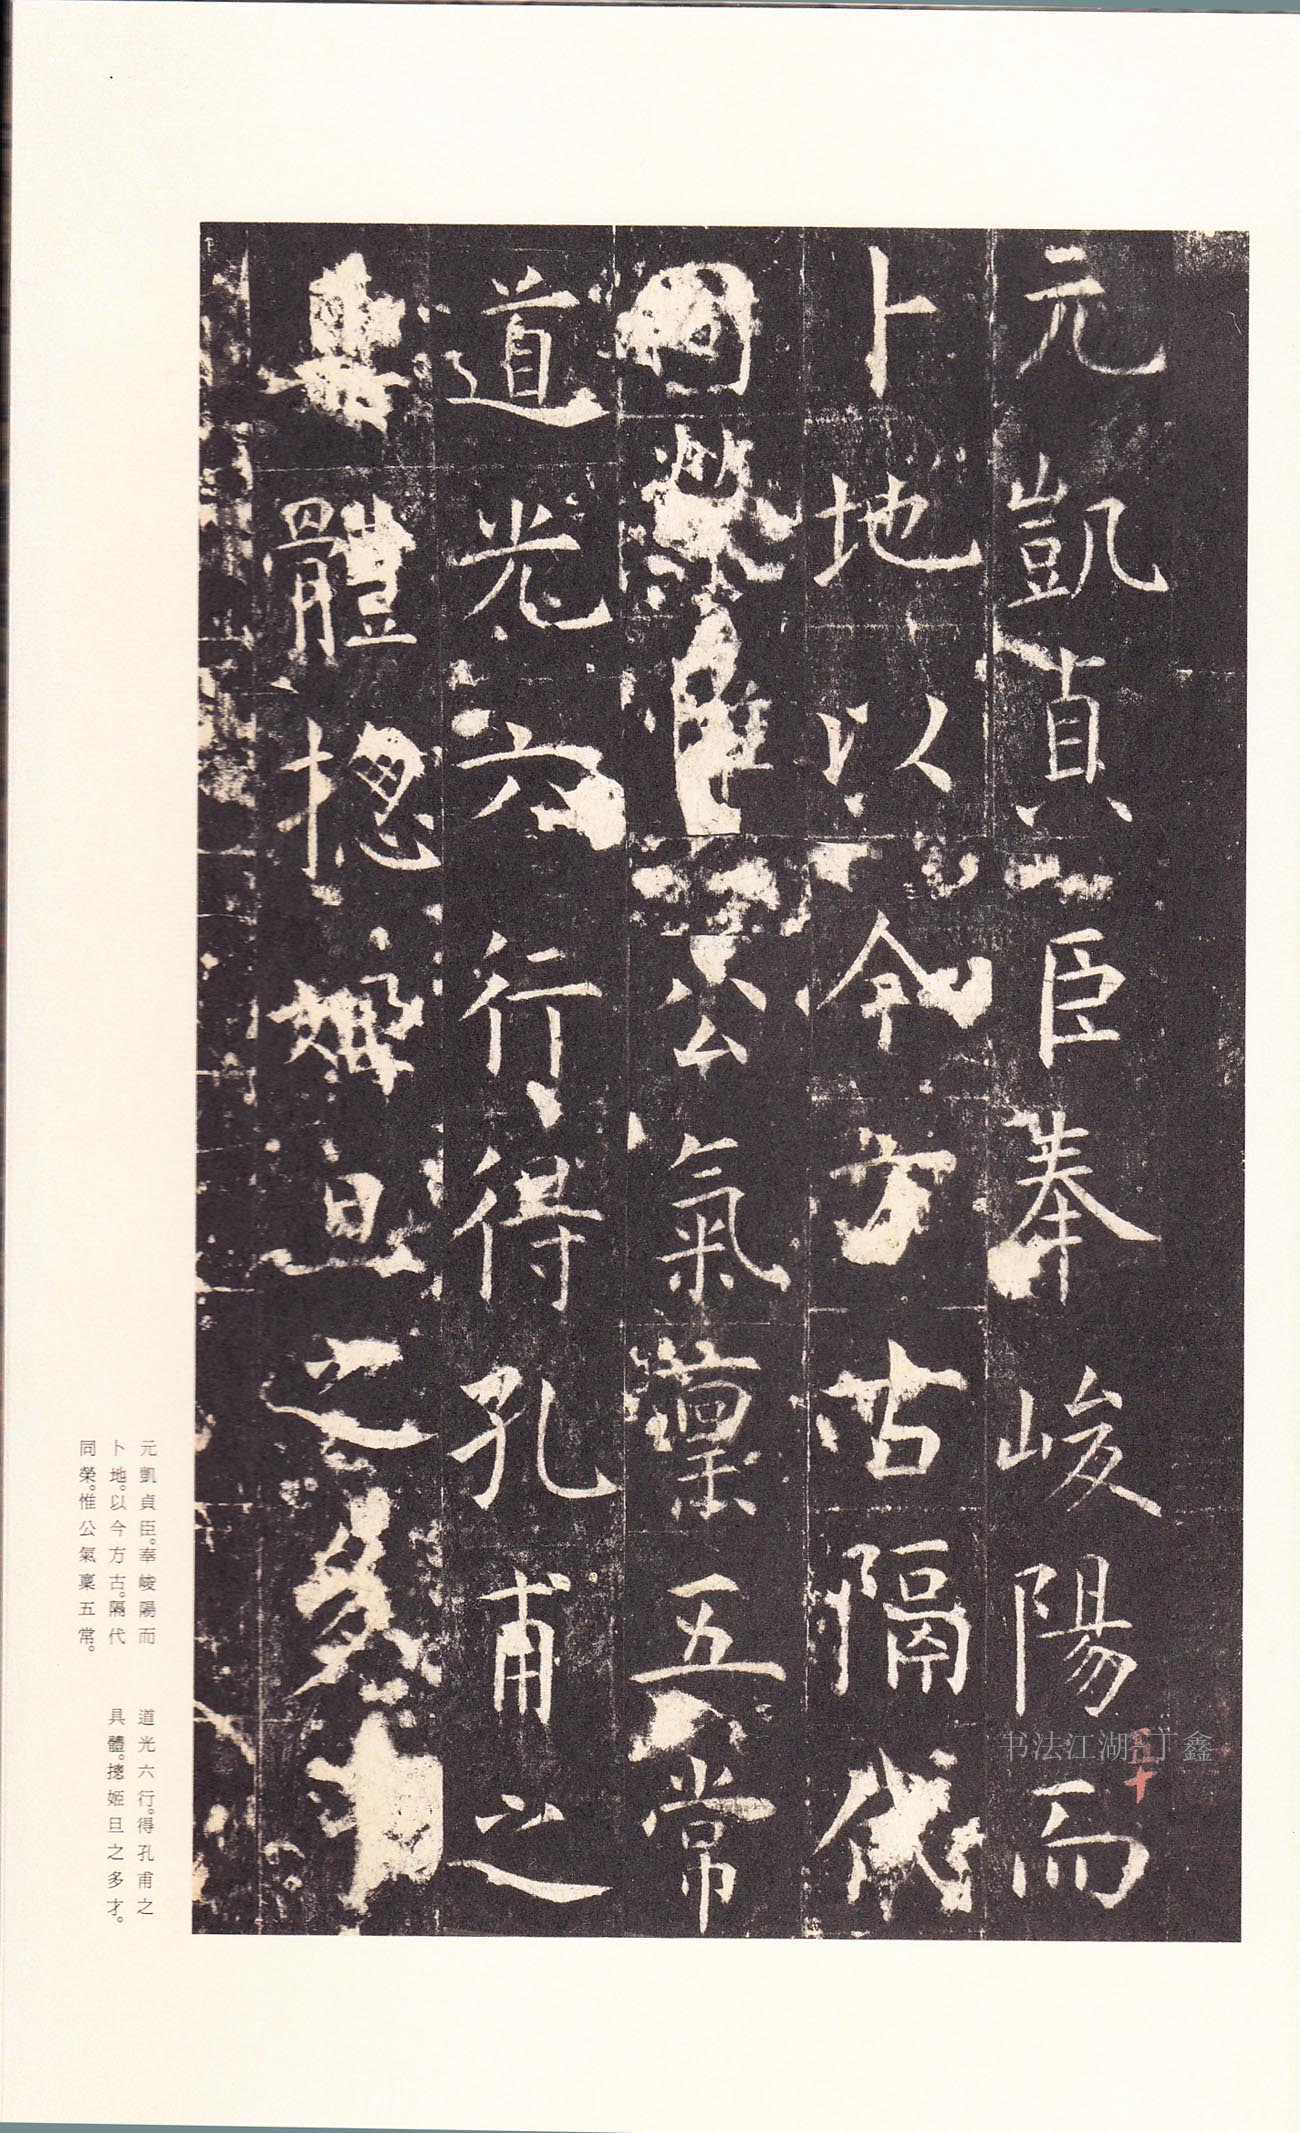 元凱貞臣奉峻陽而
卜地以今方古隔代
同榮惟公氣稟五常
道光六行得孔甫之
具體摠姬旦之多才
元凱貞臣。奉峻陽而
卜地。以今方古。隔代
同榮。惟公氣稟五常。
道光六行。得孔甫之
具體。摠姬旦之多才。
书法江湖-丁鑫